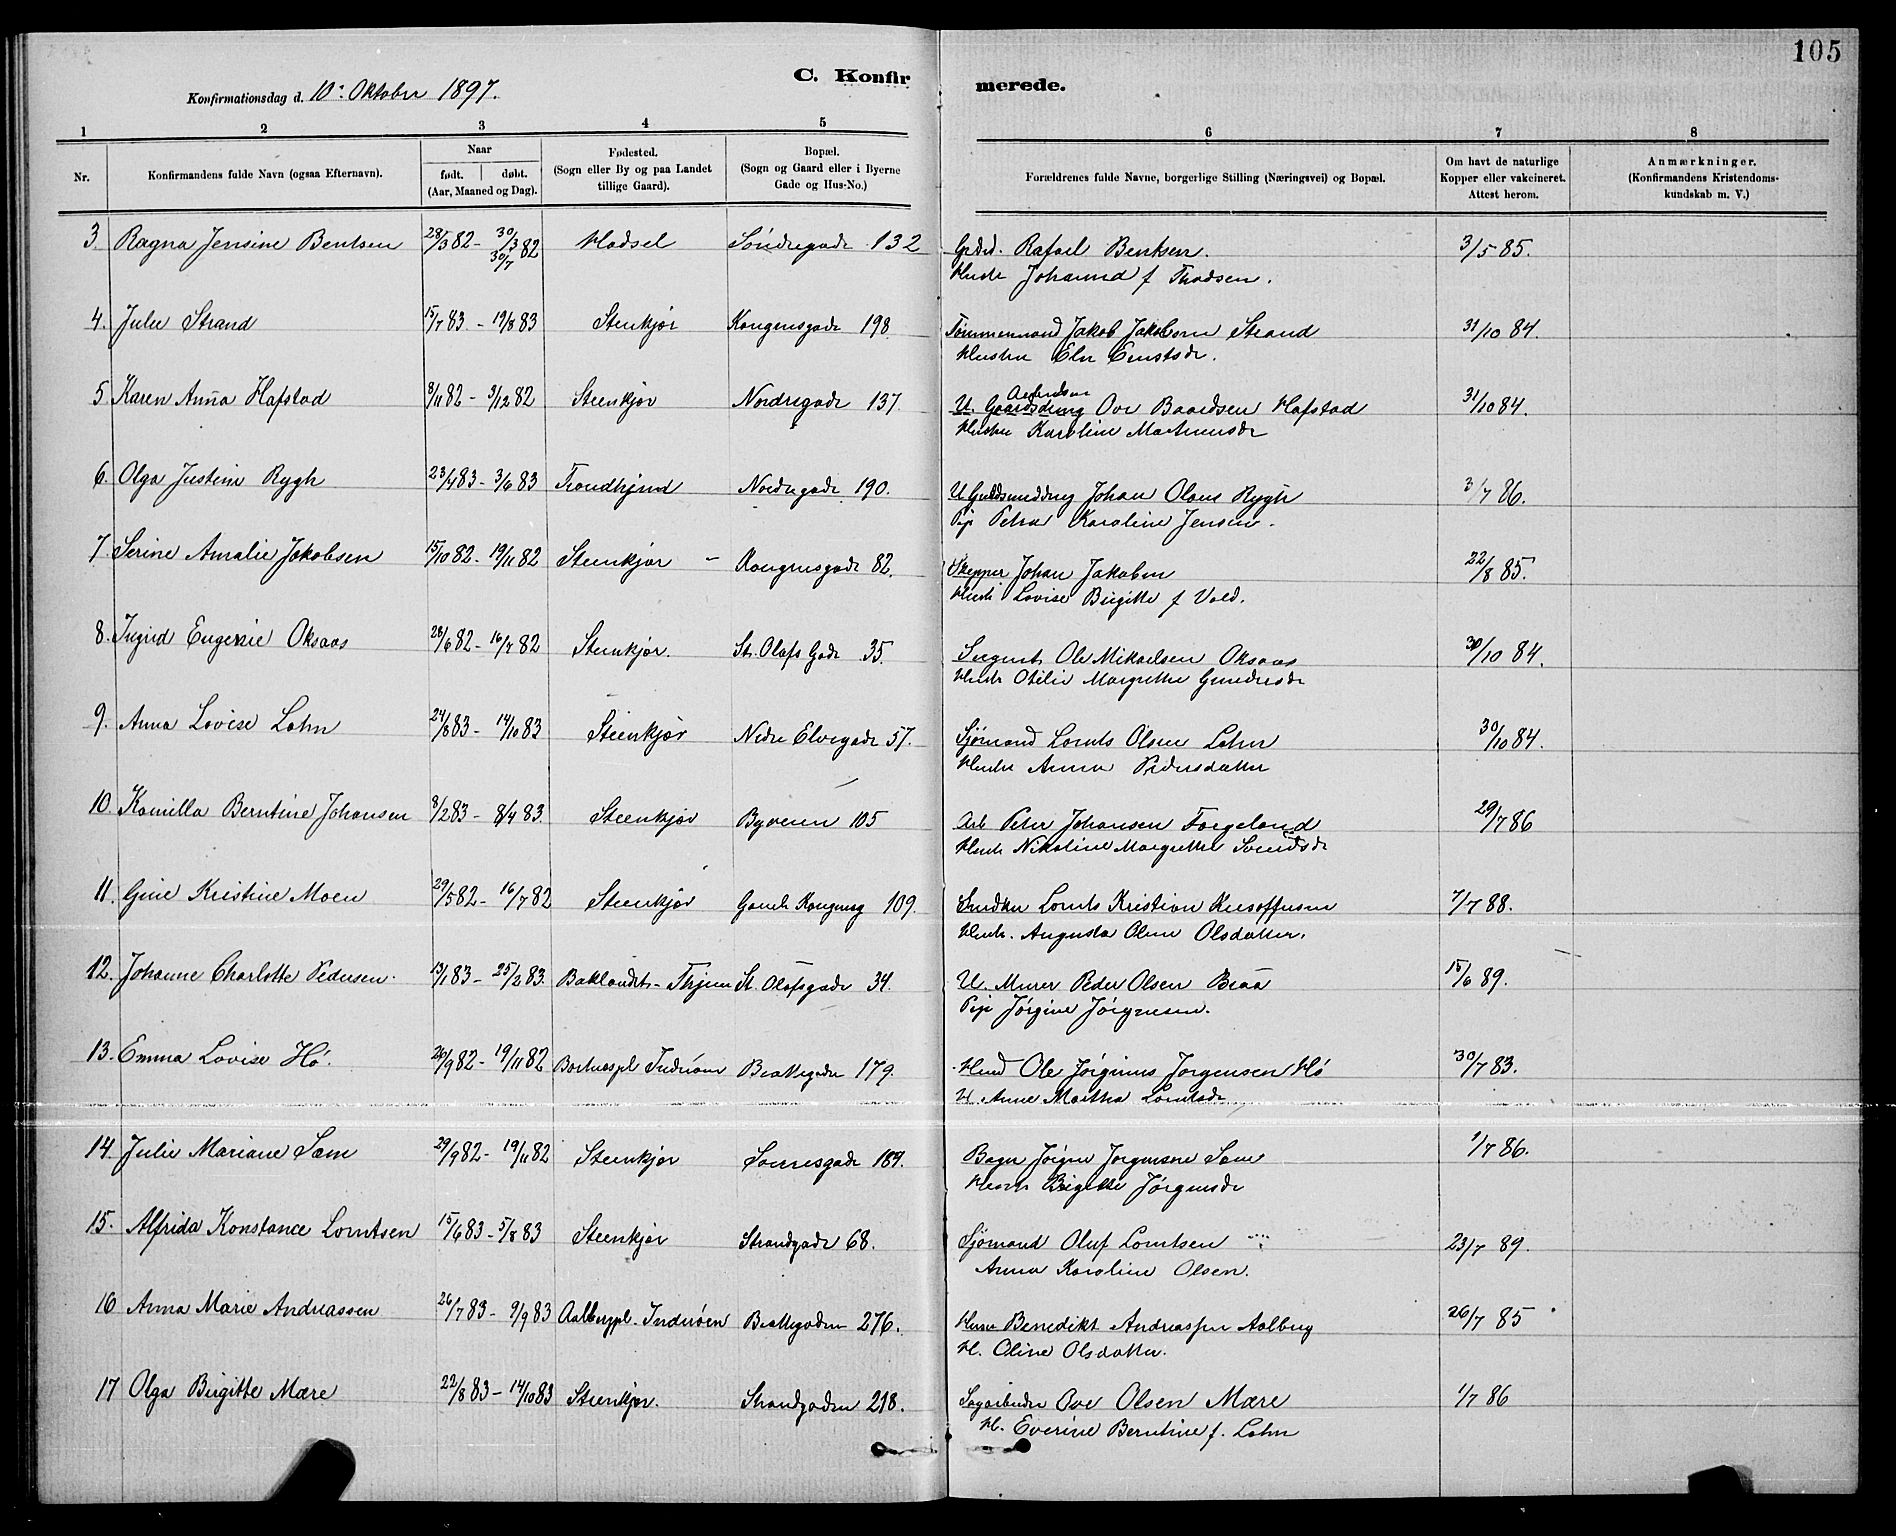 105
C. Konfir merede.
Konfirmationsdag d. 10' Oktober 1897.
1 2 3 4 5 6 7 8
Nr.
Konfirmandens fulde Navn (ogsaa Efternavn).
Naar
født. døbt.
(Aar, Maaned og Dag).
Fødested.
(Sogn eller By og paa Landet
tillige Gaard).
Bopæl.
(Sogn og Gaard eller i Byerne
Gade og Hus-No.)
Forældrenes fulde Navne, borgerlige Stilling (Næringsvei) og Bopæl.
Om havt de naturlige
Kopper eller vakcineret.
Attest herom.
Anmærkninger.
(Konfirmandens Kristendoms-
kundskab m. V.)
3. Ragna Jensine Bentsen 28/3 82 - 30/3 82 Hadsel Søndregade 132 Rafael Bentsen. 3/5 85.
30/7 Johanna f
4. Julie Strand 15/7 83 - 19/8 83 Stenkjør Kongensgade 198 Tømmermand Jakob Jakobsen Strand 31/10 84.
Hustru Elen
5 Karen Anna Hafstad 8/11 82 - 3/12 82 Steenkjør Nordregade 137. U. Ove Baardsen Hafstad 31/10 84.
Hustru Karoline
6. Olga Justine Rygh 23/4 83 - 3/6 83 Trondhjem Nordregade 190. U Johan Olaus Rygh 3/7 86.
Pige Petra Karoline Jensen.
7. Serine Amalie Jakobsen 15/10 82 - 19/11 82 Steenkjør - Kongensgade 82. Skipper Johan Jakobsen 22/8 85.
Hustru Lovise Birgitte f Vold.
8. Ingrid Eugenie Oksaas 28/6 82 - 16/7 82 Steenkjør. St. Olafs Gade 35. Sergent Ole Mikaelsen Oksaas 30/10 84.
Hustru Otilie Margrethe
9. Anna Lovise Lohn 24/8 83 - 14/10 83 Steenkjør Nedre Elvegade 57. Sjømand Lornts Olsen Lohn 30/10 84.
Hustru Anna Pedersdatter
10. Kamilla Berntine Johansen 8/2 83 - 8/4 83 Steenkjør Byveien 105 Arb Peter Johansen Forgeland 29/7 86
Hustru Nikoline Margrethe Svendsdr
11. Gine Kristine Moen 29/5 82 - 16/7 82 Steenkjør Gamle Kongevej 109. Snedker Lornts Kristian Kristoffersen 7/7 88.
Hustru. Augusta Oline Olsdatter.
12. Johanne Charlotte Pedersen. 13/1 83 - 25/2 83. Baklandet - Thjem St. Olafsgade 34. U. Murer Peder Olsen Braa 15/6 89.
Pige Jørgine Jørgensen.
13. Emma Lovise Hø. 26/9 82 - 19/11 82 Inderøen Brattegaden 179. Ole Jørginus Jørgensen Hø 30/7 83.
H. Anne Martha Lorntsdr
14. Julie Mariane Sem 29/9 82 - 19/11 82 Steenkjør 189. Bager Jørgen Jørgensen Sem 1/7 86.
Hustru Birgitte Jørgensdr
15. Alfrida Konstance Lorntsen 15/6 83 - 5/8 83 Steenkjør Strandgade 68. Sjømand Oluf Lorntsen 23/7 89.
Anna Karoline Olsen.
16 Anna Marie Andreassen 26/7 83 - 9/9 83 Aalbergpl. Inderøen Brattegaden 276. Benedikt Andreassen Aalberg 26/7 85
H. Oline Olsdatter.
17 Olga Birgitte Mære 22/8 83 - 14/10 83 Steenkjør. Strandgaden 218. Sagarbeider Ove Olsen Mære 1/7 86
H. Everine Berntine f. Lohn